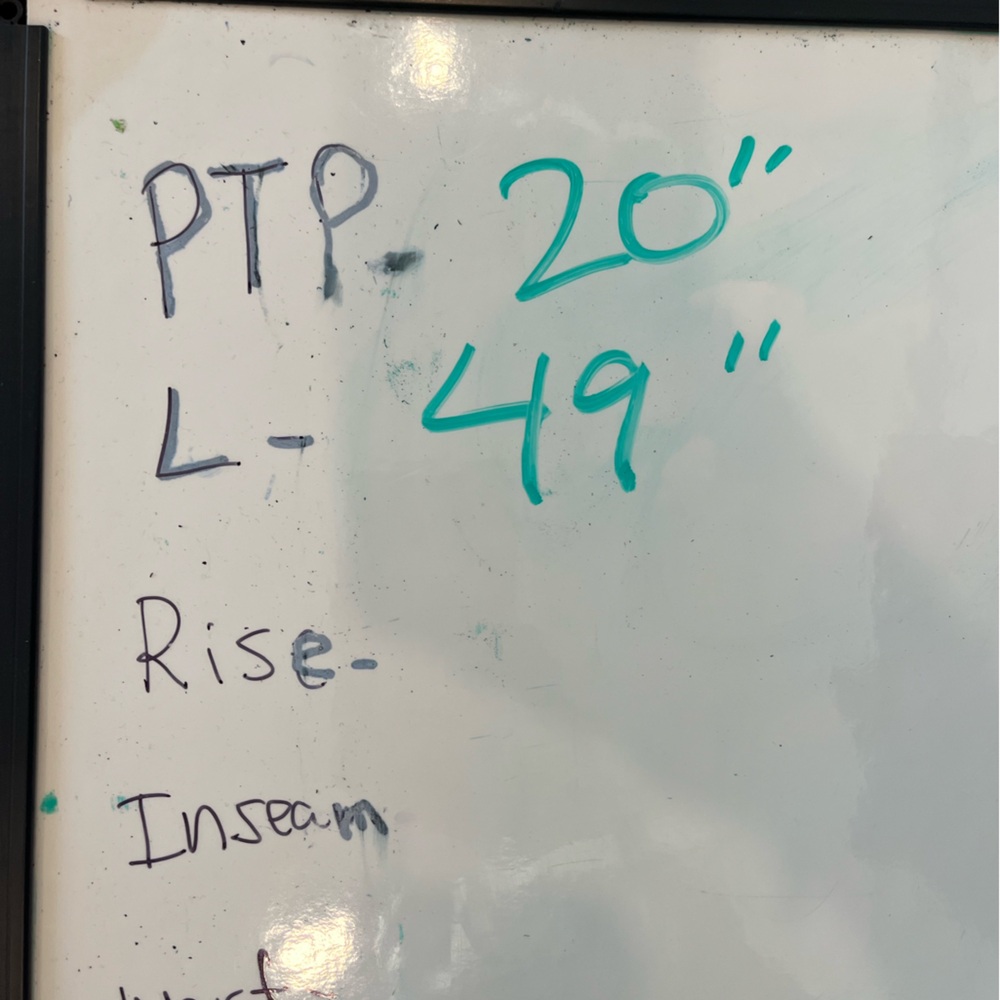 PTP- 20"
L- 49"
Rise-
Inseam